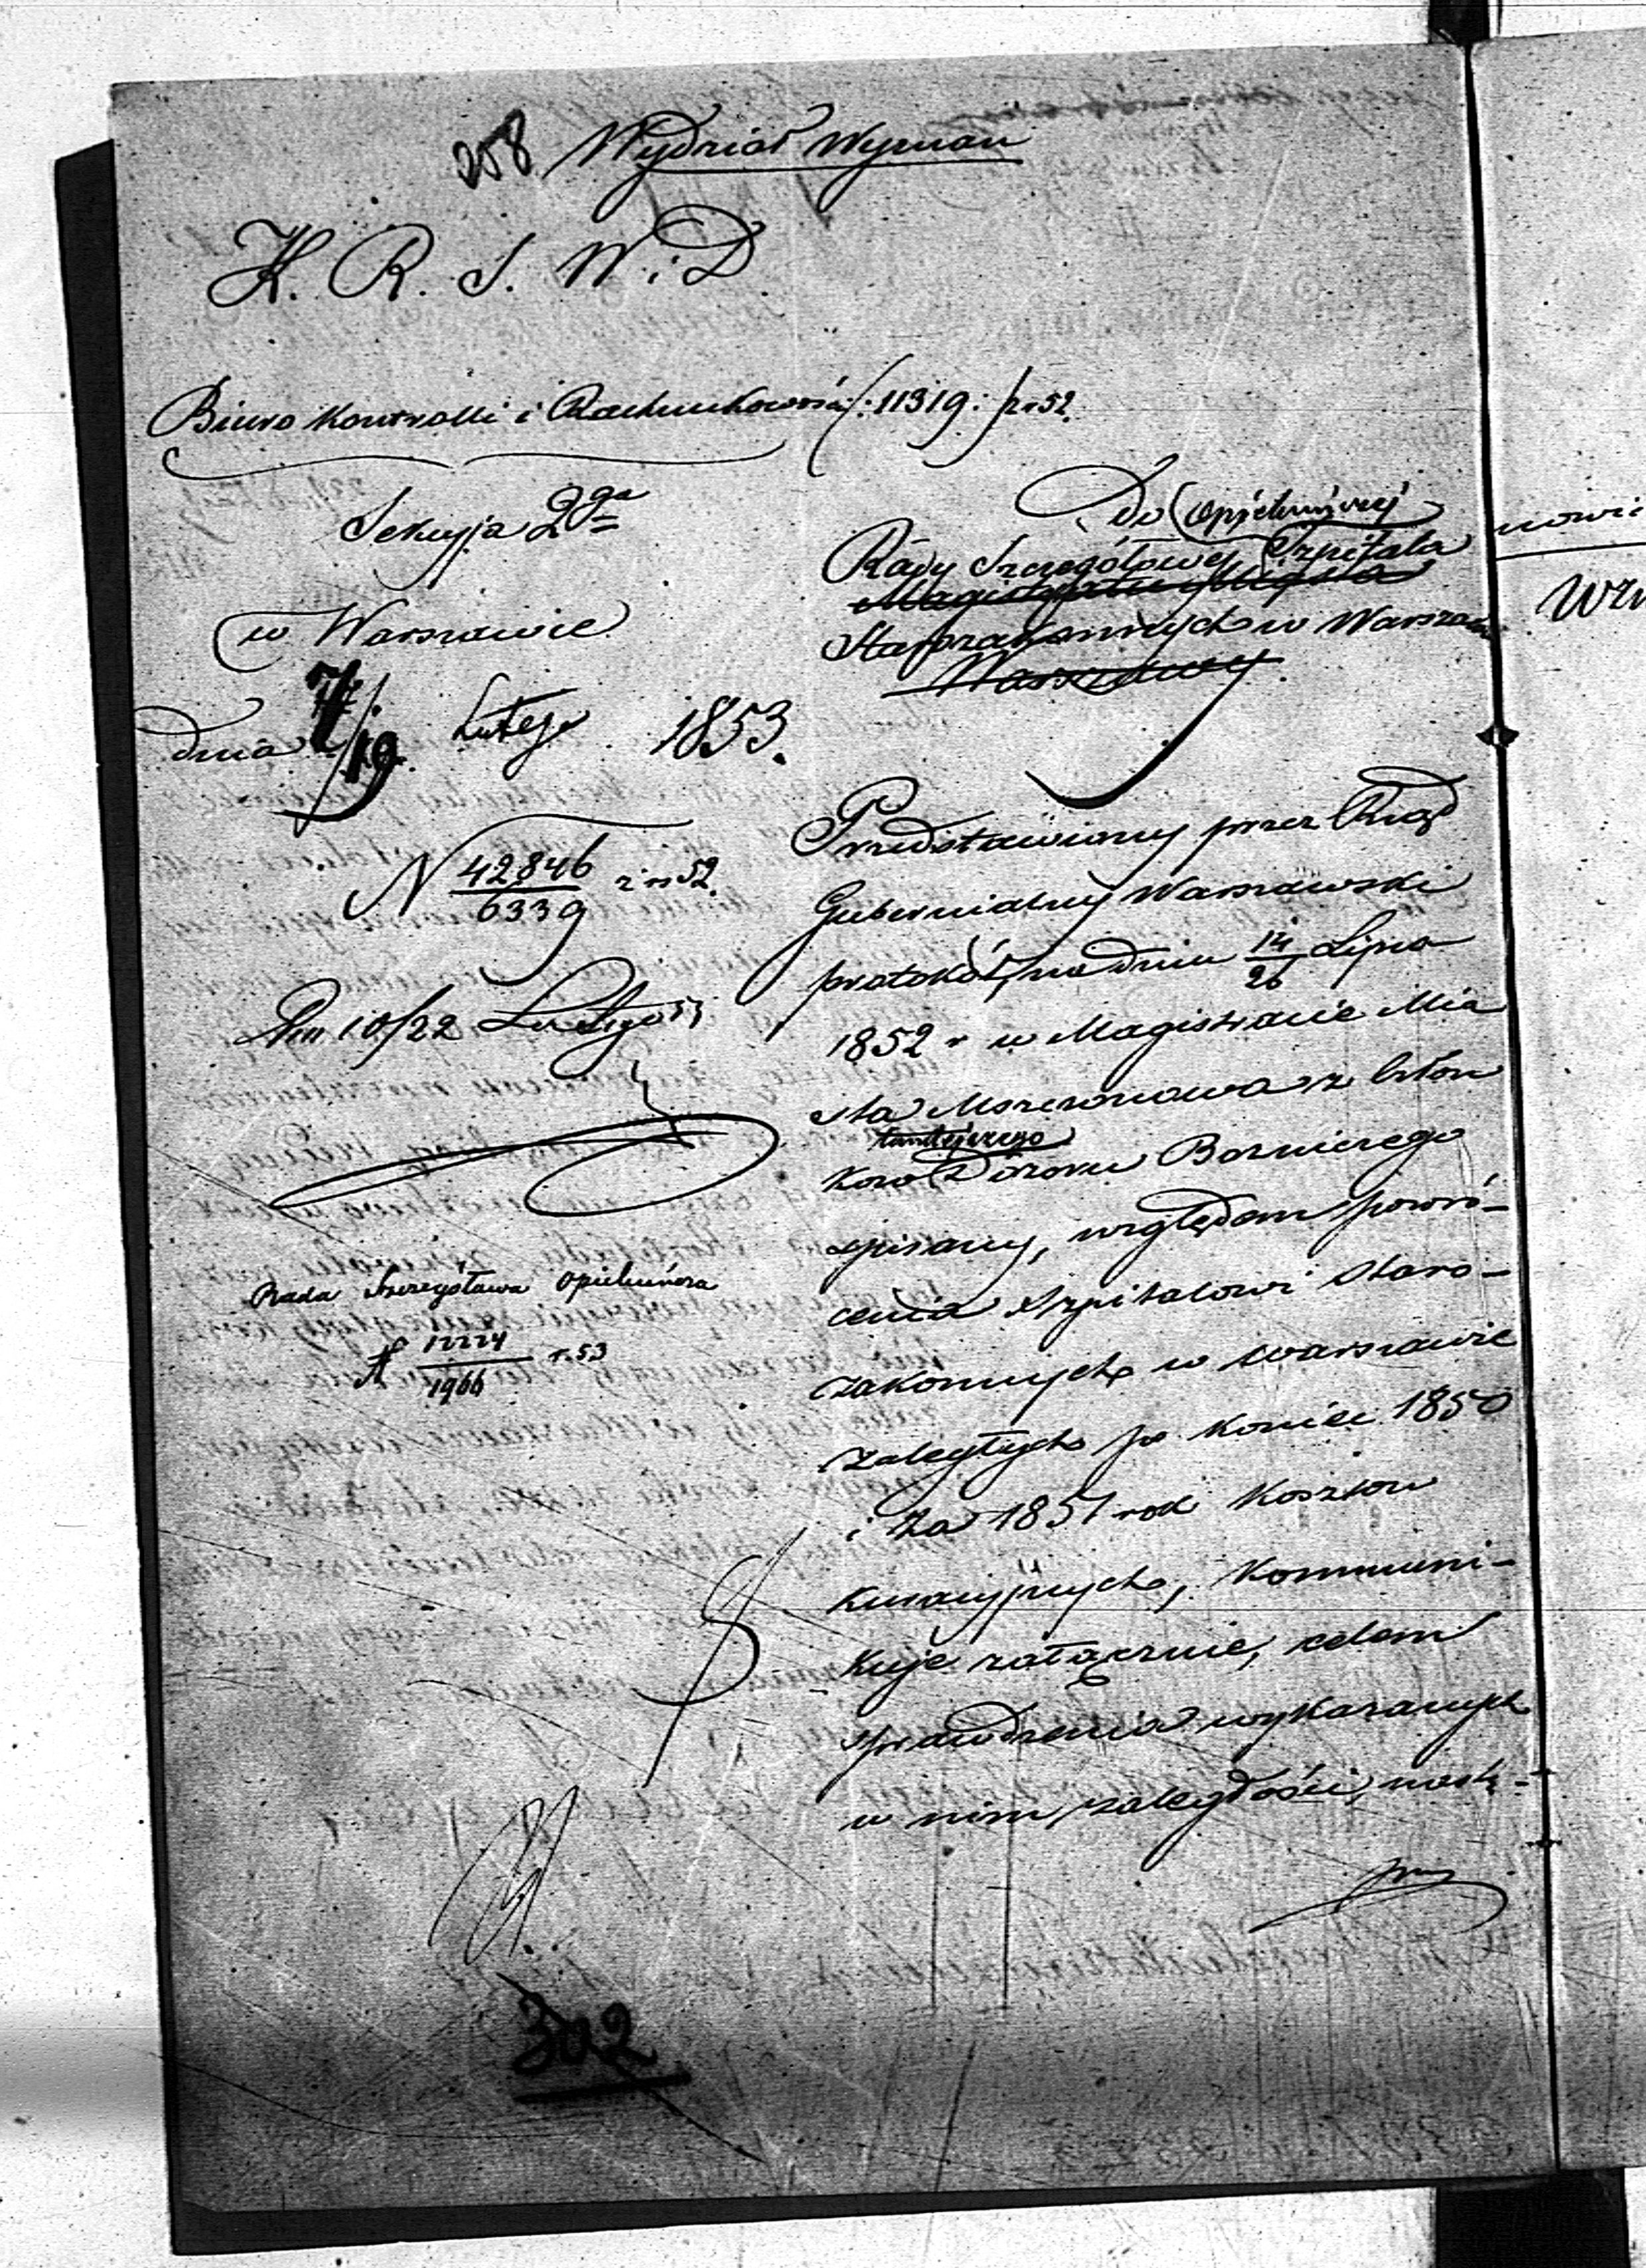 208 Wydział Wyznan
K. R. S. W. i D.
Biuro Kontrolli i Rachunkowości (: 11319 :) z r 52.
Sekcyja 2ga
w Warszawie
dnia 7/19 Lutego 1853.
N 42846/6339 z r 52.
Dnia 10/22 Lutego 53
Rada Szczegółowa Opiekuńcza
N 12224/1966 r. 53
302
Do Opiekuńczej
Rady Szczegółowej Szpitala
Magistratu Miasta
Starozakonnych w Warszawie
Warszawy
Przedstawiony przez Rząd
Gubernialny Warszawski
protokół, na dniu 14/26 Lipca
1852 r w Magistracie Mia
sta Mszczonowa z Człon
tamtejszego
kow Dozoru Bożniczego
spisany, względem powró-
cenia Szpitalowi Staro-
zakonnych w Warszawie
zaległych po koniec 1850
i za 1851 rok kosztow
kuracyjnych, kommuni-
kuje załącznie, celem
sprawdzenia wykazanych
w nim zaległości, nastę-
pnie
nowi